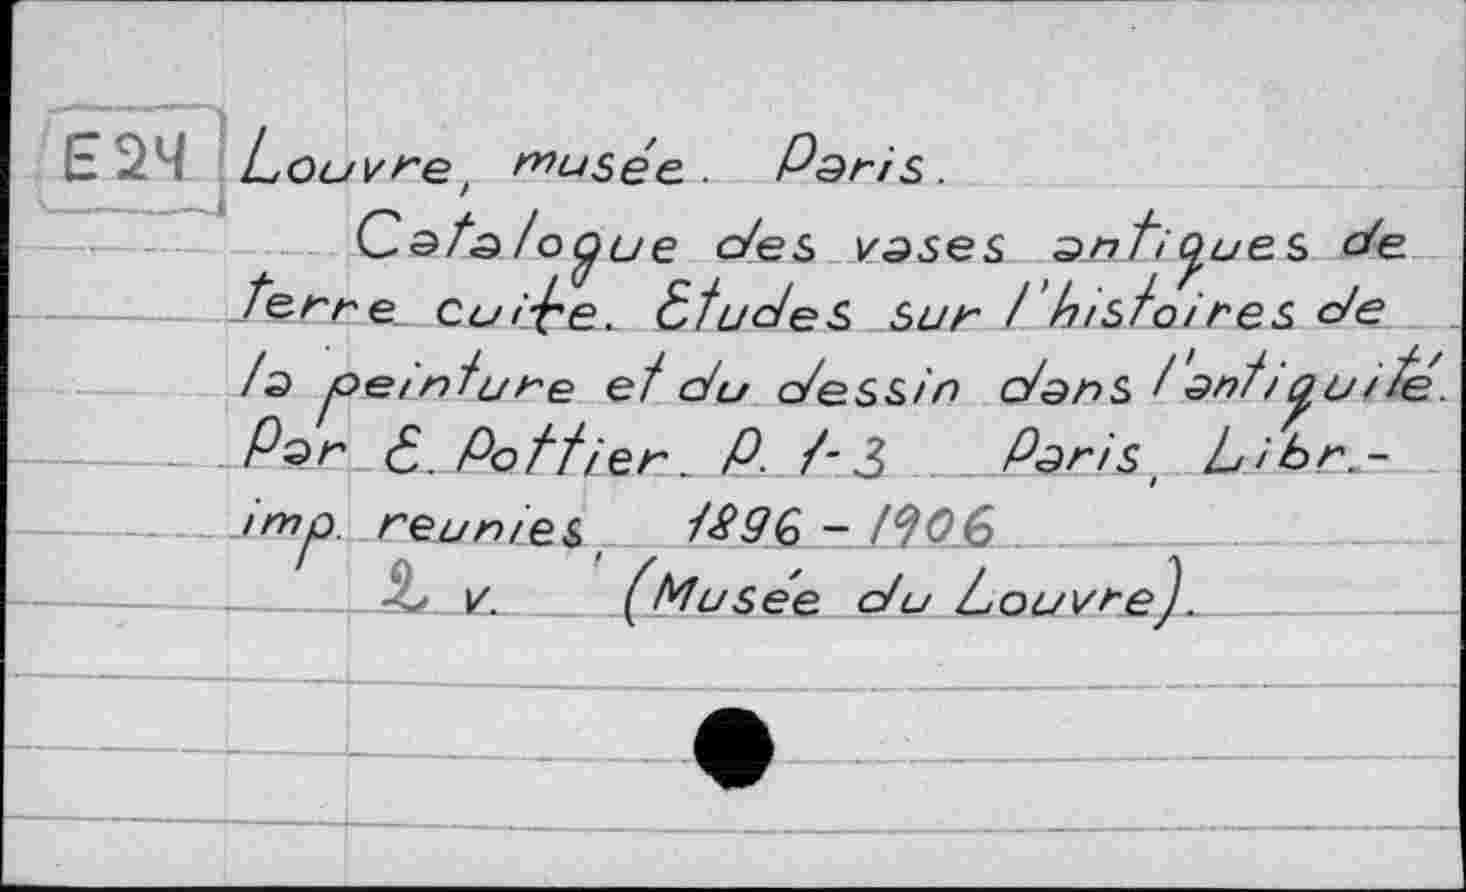 E24 Louvre, musée. Paris.
Catalogue des vases antiques de
terre cuite. Etudes sur l'histoires de
la peinture et du dessin dans l'antiquité.
Par E. Pottier. P. 1-3 Paris, Libr.-
imp. reunies, 1896 - 1906
2 v. (Musée du Louvre).